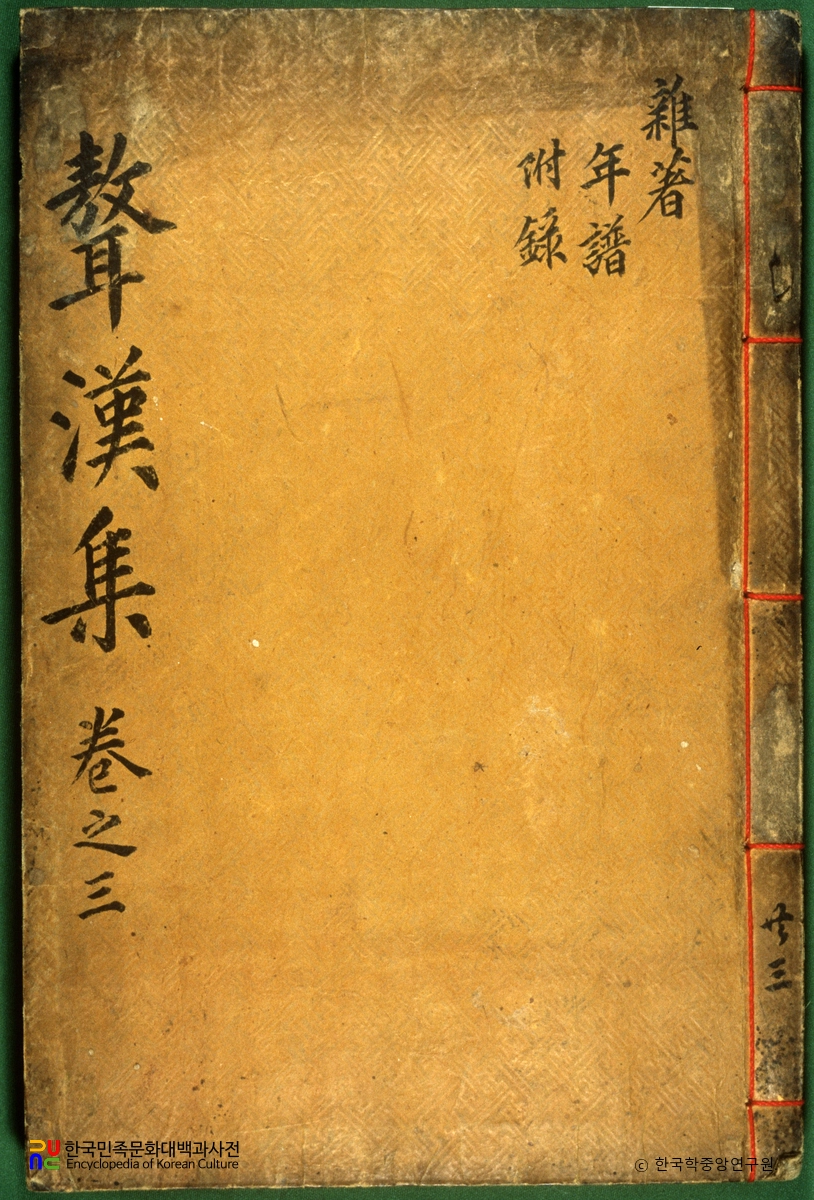 共三
雜著
年譜
附錄
聱漢集 卷之三
한국민족문화대백과사전
Encyclopedia of Korean Culture
© 한국학중앙연구원